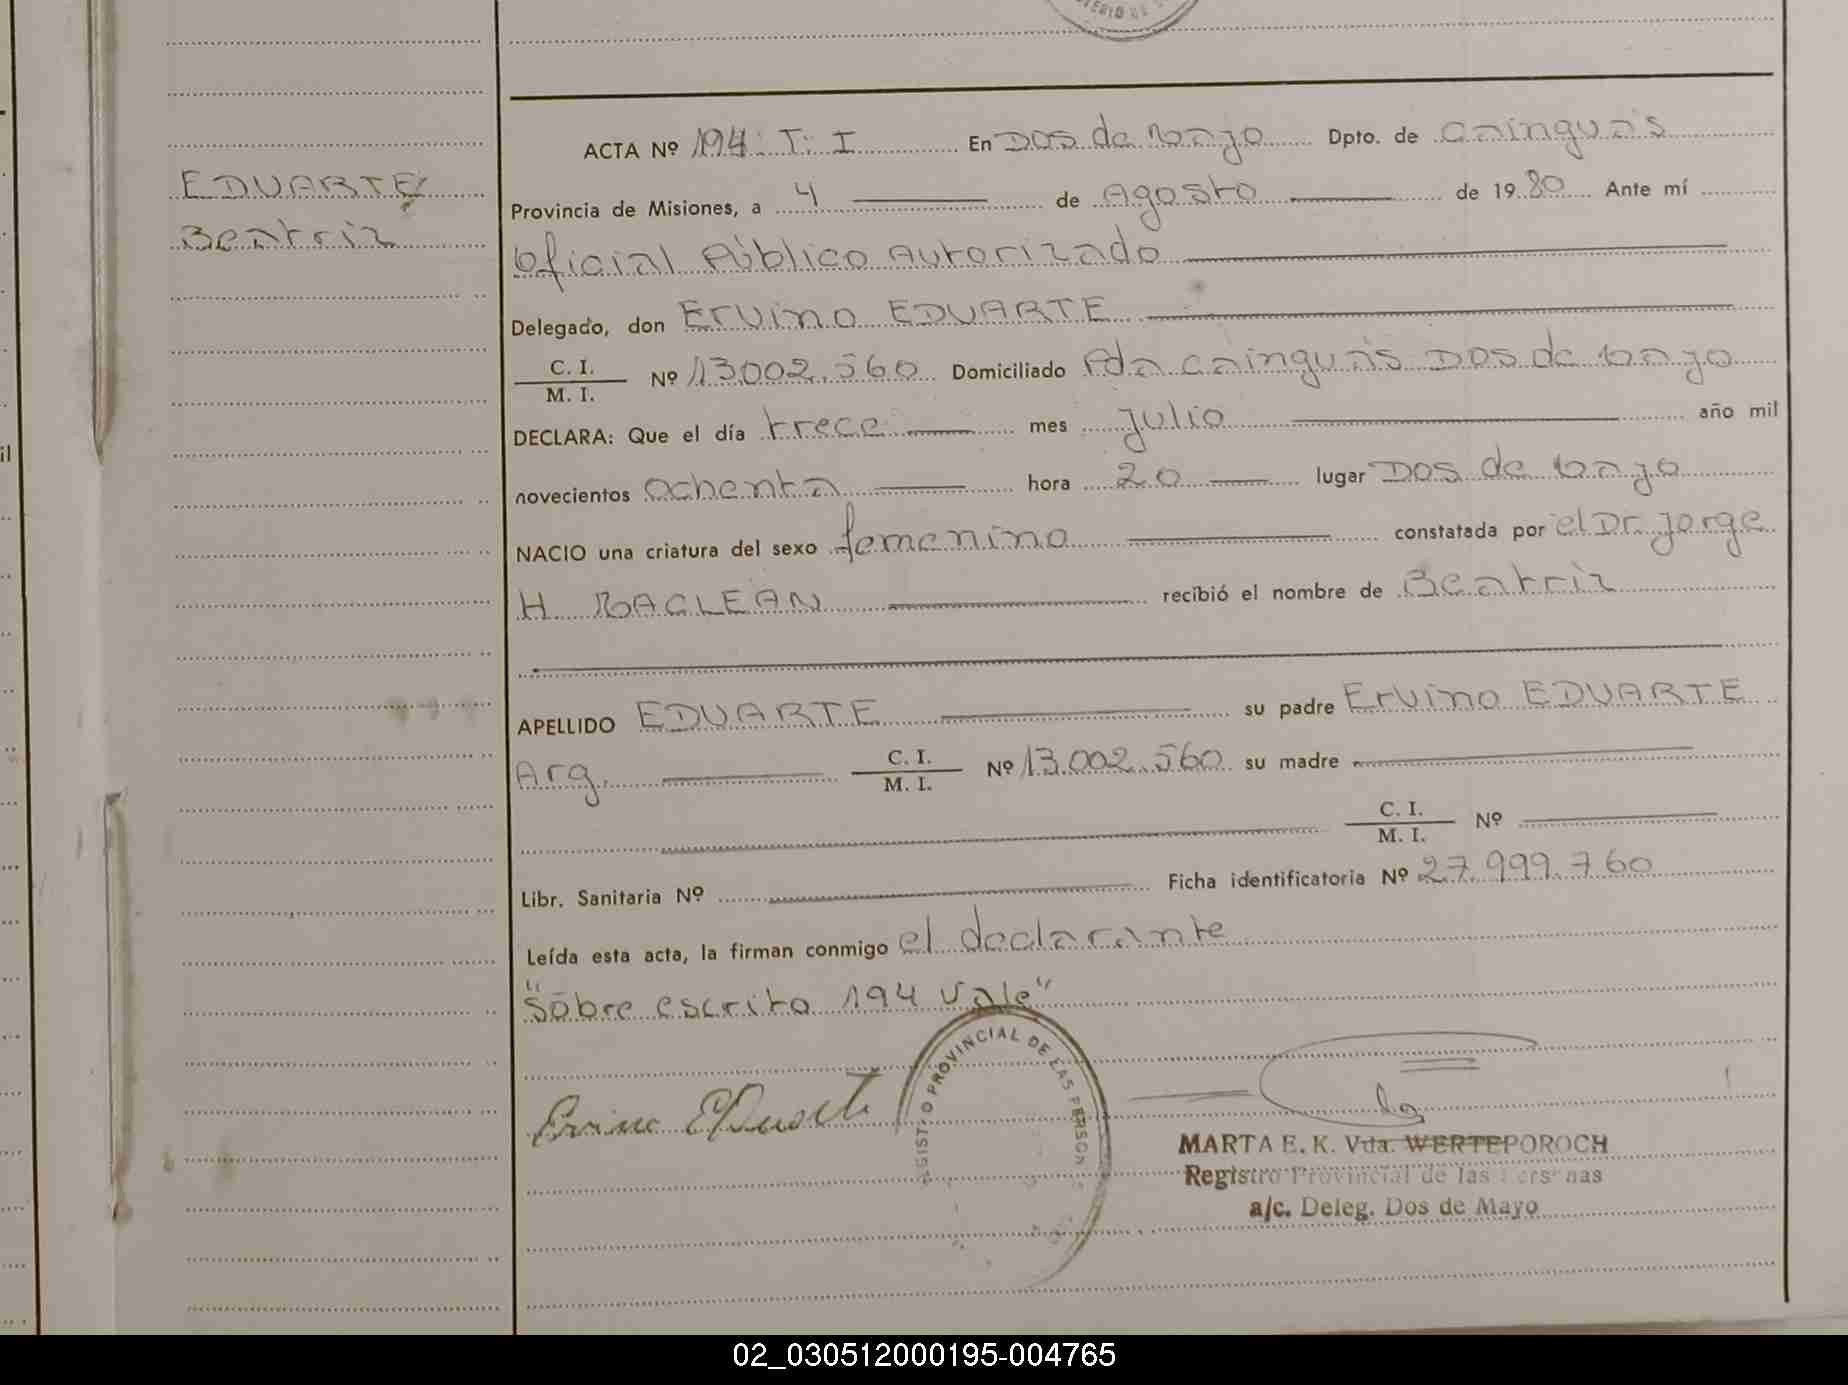 EDUARTE
Beatriz
ACTA Nº 194 T: I En Dos de Mayo Dpto. de Cainguás
Provincia de Misiones, a 4 de Agosto de 1980 Ante mí
Oficial Público Autorizado
Delegado, don Ervino EDUARTE
C. I.
M. I. Nº 13.002.560 Domiciliado Pda Cainguás Dos de Mayo
DECLARA: Que el día trece mes julio año mil
novecientos ochenta hora 20 lugar Dos de Mayo
NACIO una criatura del sexo femenino constatada por el Dr. Jorge
H. MACLEAN recibió el nombre de Beatriz
APELLIDO EDUARTE su padre Ervino EDUARTE
Arg. C. I. M. I. Nº 13.002.560 su madre
C. I. M. I. Nº
Libr. Sanitaria Nº Ficha identificatoria Nº 27.999.760
Leída esta acta, la firman conmigo el declarante
"Sobre escrito 194 vale"
REGISTRO PROVINCIAL DE LAS PERSON
Ervino EDuarte
MARTA E. K. Vda. WERTEPOROCH
Registro Provincial de las Personas
a/c. Deleg. Dos de Mayo
02_030512000195-004765